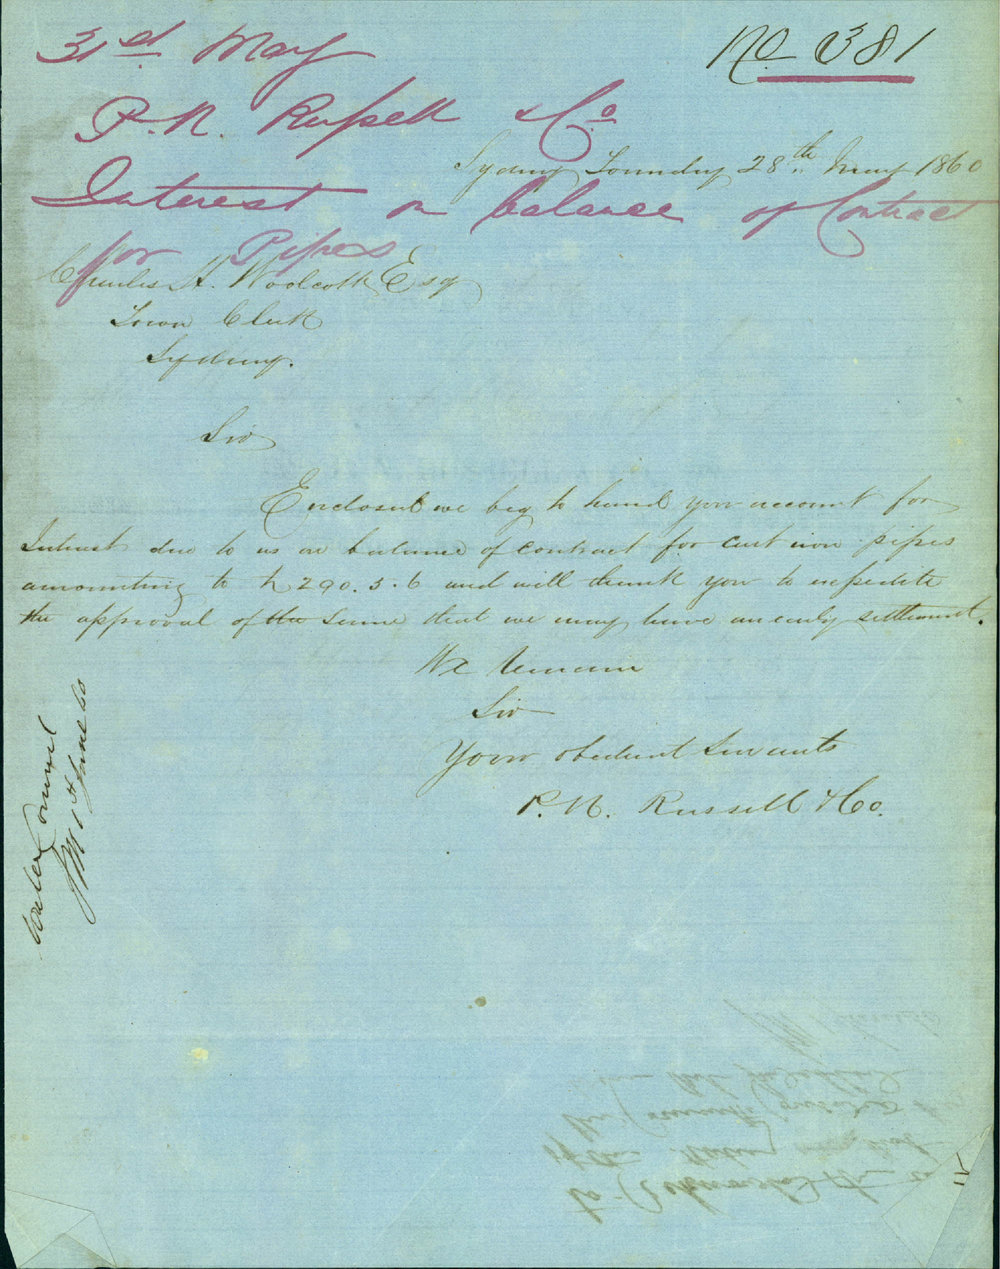 No 381
31st May
P. N. Russell & Co
Interest on balance of Contract
for Pipes
Sydney Foundry 28th May 1860
Charles H. Woolcott Esq
Town Clerk
Sydney.
Sir
Enclosed we beg to hand you account for
Interest due to us on balance of contract for cast iron pipes
amounting to £290.5.6 and will thank you to expedite
the approval of the same that we may have an early settlement.
We remain
Sir
Your obedient Servants
P. N. Russell & Co.
Water Committee
1st June 60